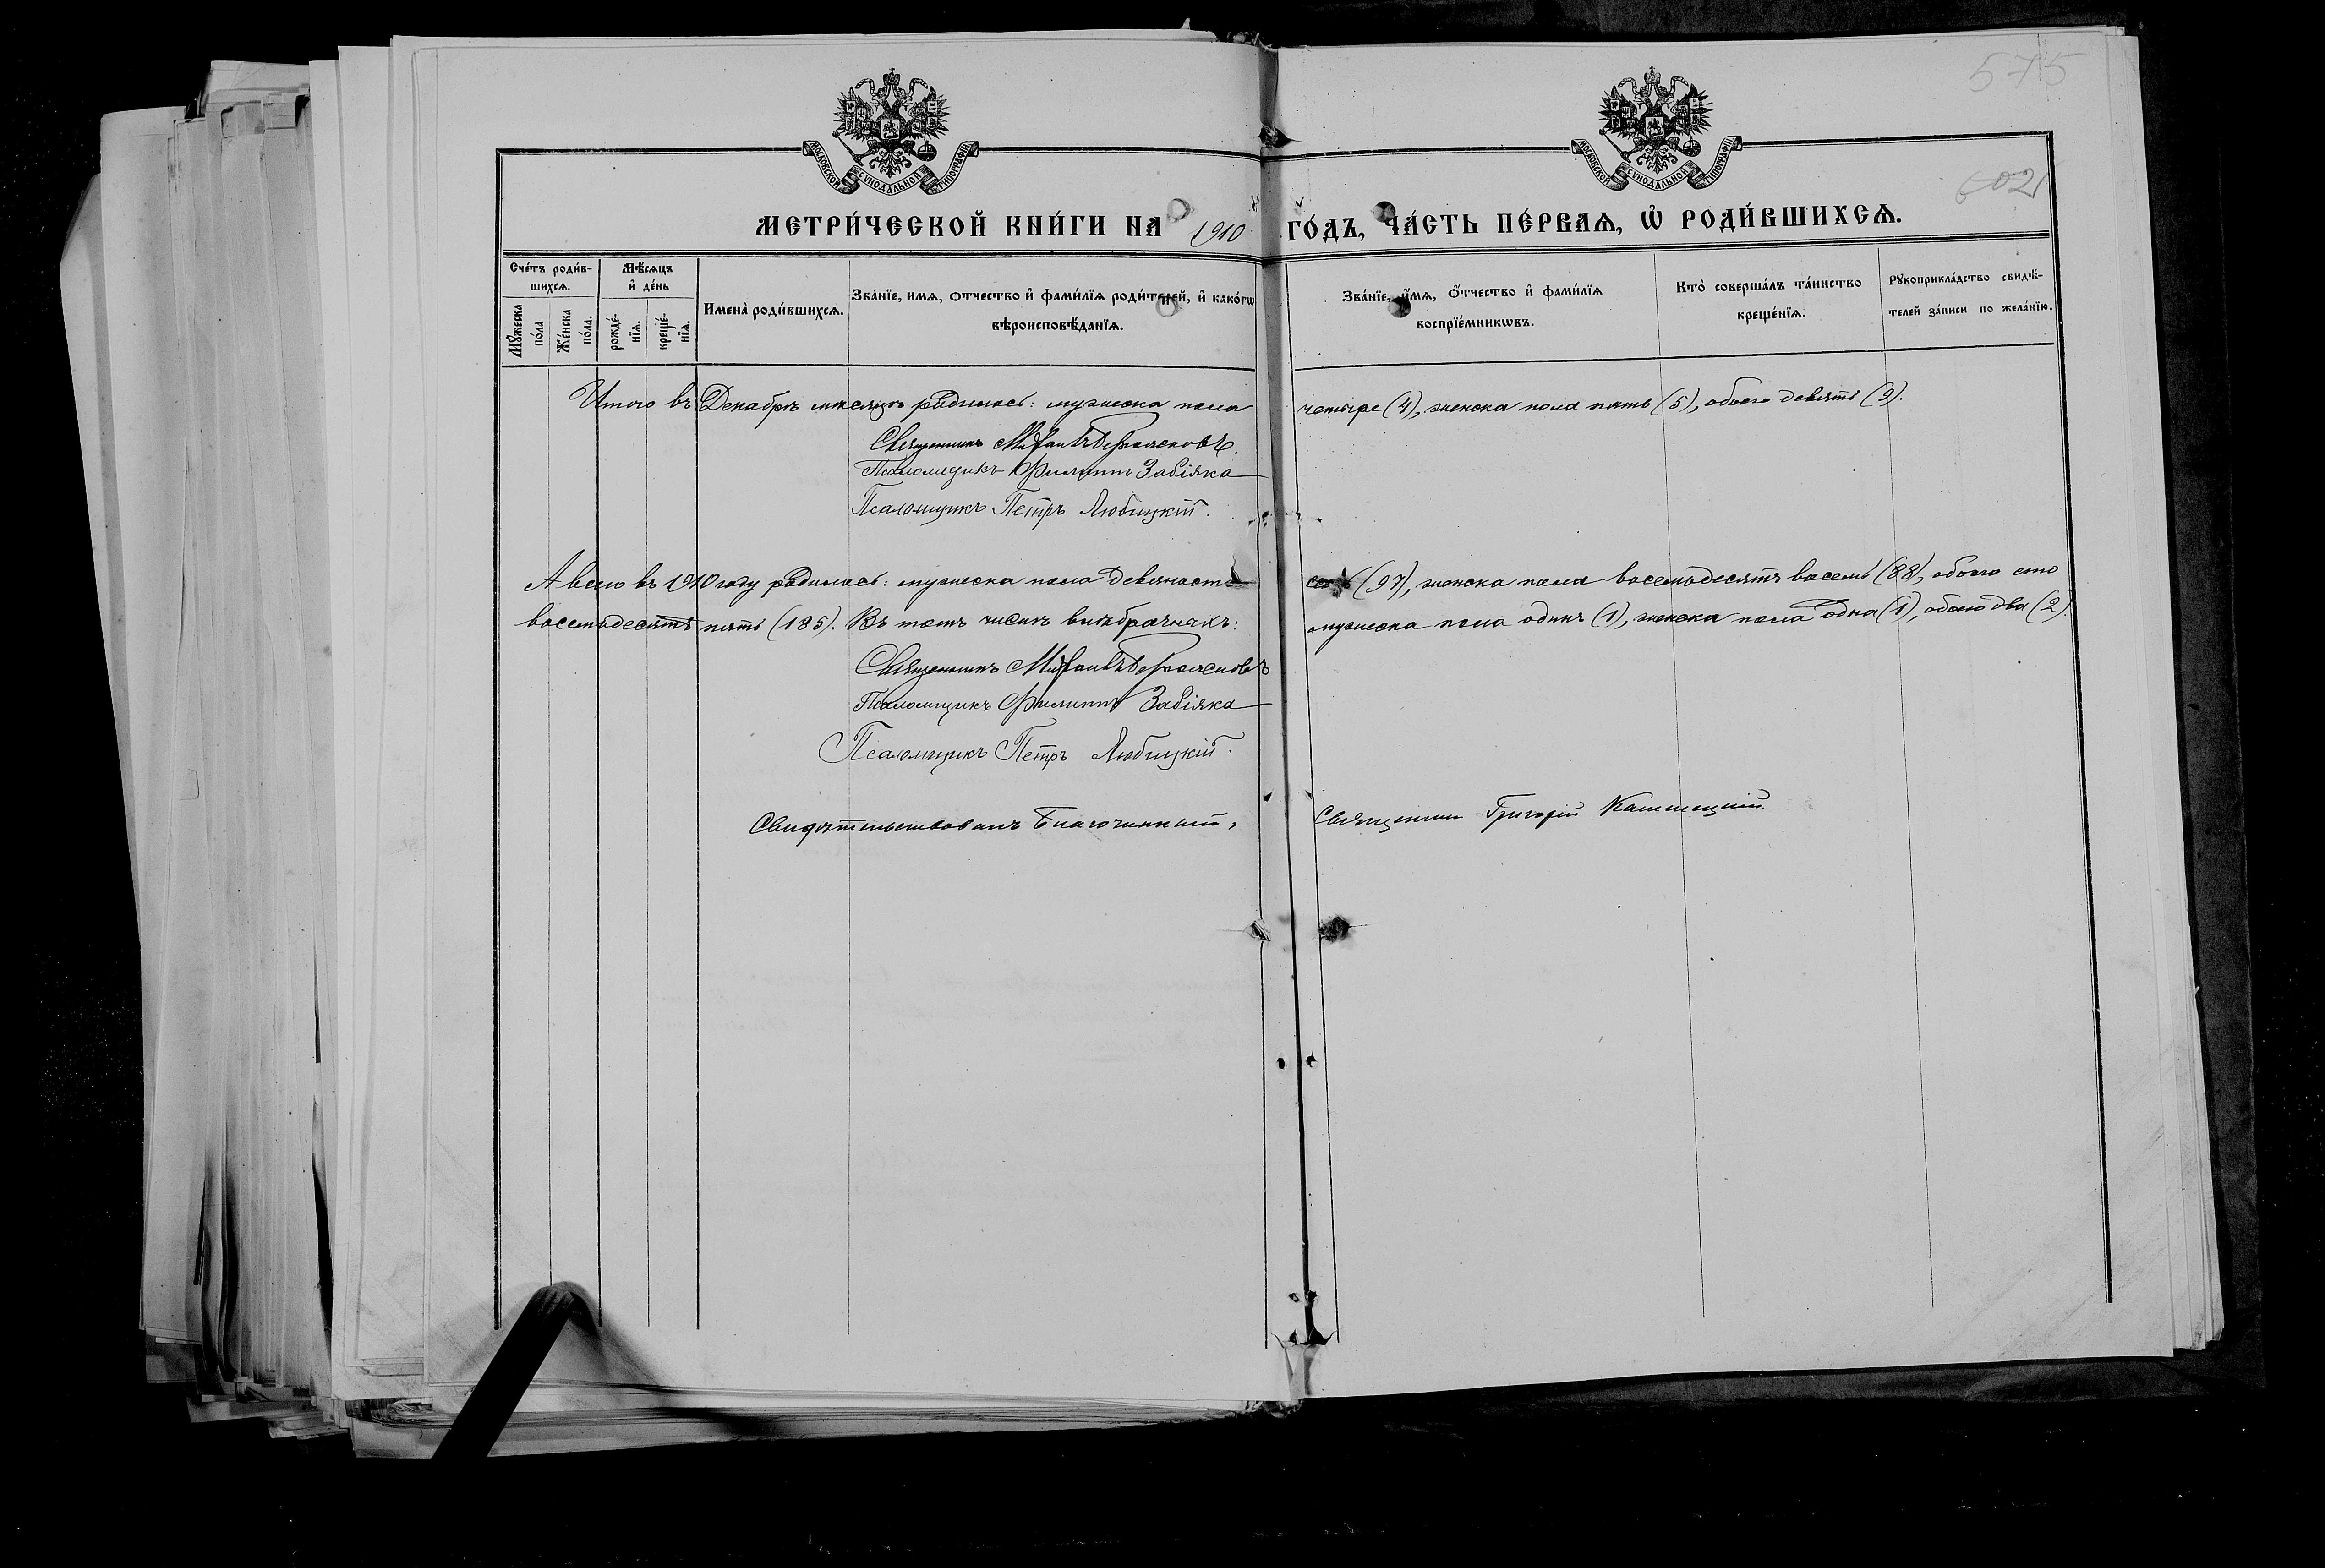 575
602
МОСКОВСКОЙ СѴНОДАЛЬНОЙ ТИПОГРАФІИ
МОСКОВСКОЙ СѴНОДАЛЬНОЙ ТИПОГРАФІИ
МЕТРИ́ЧЕСКОЙ КНИ́ГИ НА 1910 ГО́ДЪ, ЧА́СТЬ ПЕ́РВАѦ, Ѡ҆ РОДИ́ВШИХСѦ.
Сче́тъ роди́в-
шихсѧ.
Мꙋ́жеска
по́ла
Же́нска
по́ла.
Мѣ́сѧцъ
и҆ де́нь
рожде́-
нїѧ.
креще́-
нїѧ.
Имена̀ роди́вшихсѧ.
Зва́нїе, имѧ, отчество и҆ фами́лїѧ роди́телей, и҆ како́гѡ
вѣроисповѣ́данїѧ.
Зва́нїе, и҆́мѧ, о҆́тчество и҆ фами́лїѧ
воспрїе́мникѡвъ.
Кто̀ соверша́лъ та́инство
креще́нїѧ.
Рꙋкоприкла́дство свидѣ́-
телей за́писи по жела́нїю.
Итого въ Декабрѣ мѣсяцѣ родилось: мужеска пола четыре (4), женска пола пять (5), обоего девять (9).
Священникъ
Псаломщикъ Филиппъ Забіяка
Псаломщикъ Петръ Любицкій.
А всего въ 1910 году родилось: мужеска пола девяносто семь (97), женска пола восемьдесятъ восемь (88), обоего сто
восемьдесятъ пять (185). Въ томъ числѣ внѣбрачныхъ: мужеска пола одинъ (1), женска пола одна (1), обоего два (2).
Священникъ
Псаломщикъ Филиппъ Забіяка
Псаломщикъ Петръ Любицкій.
Свидѣтельствовалъ Благочинный, Священникъ Григорій